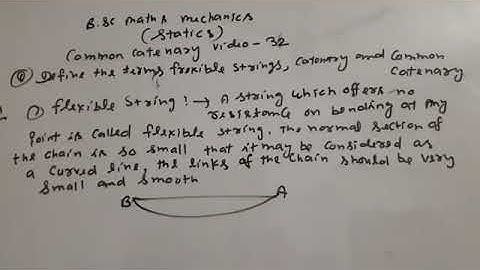 B.Sc maths mechanics
(Statics)
Common catenary video - 32
Q Define the terms flexible strings, catenary and Common
Catenary
① flexible string : → A string which offers no
resistance on bending at any
point is called flexible string. The normal section of
the chain is so small that it may be considered as
a curved line, the links of the chain should be very
small and smooth
B A